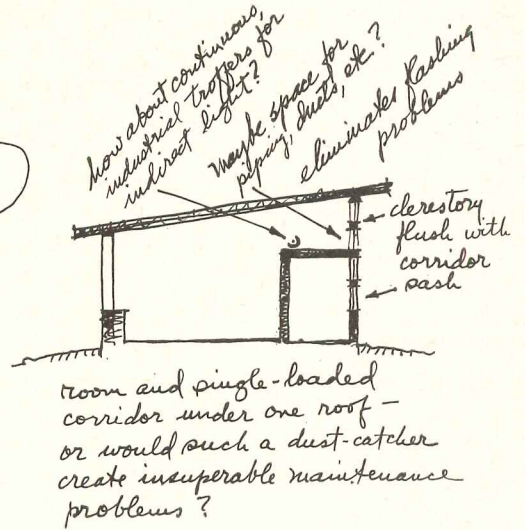 how about continuous,
industrial troffers for
indirect light?
maybe space for
piping, ducts, etc.?
eliminates flashing
problems
clerestory
flush with
corridor
sash
room and single-loaded
corridor under one roof —
or would such a dust-catcher
create insuperable maintenance
problems?